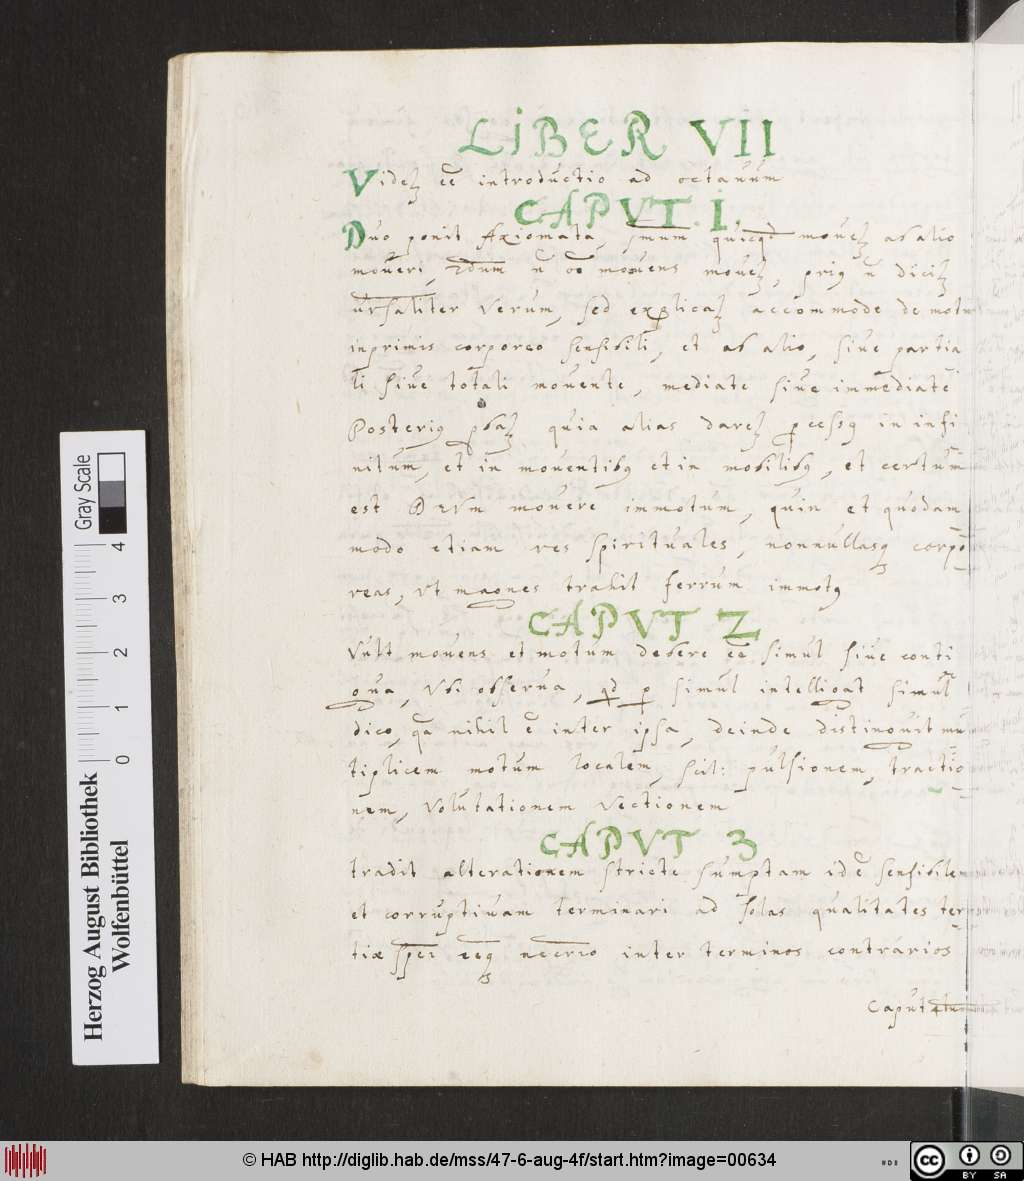 LIBER VII
Videt ee introductio ad octauum
CAPVT. I.
Duo ponit Axiomata, quicqd mouet ab alio
moueri, 2dum n oe mouens mouet, prius n dicit
ursaliter verum, sed explicat accommode de motu
inprimis corporeo sensibili, et ab alio, siue partia
li siue totali mouente, mediate siue immediate
Posterius pbat quia alias daret pcessus in infi
nitum, et in mouentibus et in mobilibus, et certum
est DEVm mouere immotum, quin et quodam
modo etiam res spirituales, nonnullasq corpo
reas, vt magnes trahit ferrum immotus
CAPVT 2
Vult mouens et motum debere ee simul siue conti
gua, Vbi obserua, qd p simul intelligat simul
dico, qa nihil e inter ipsa, deinde distinguit mul
tiplicem motum localem, scil: pulsionem, tractio
nem, volutationem vectionem
CAPVT 3
tradit alterationem stricte sumptam id e sensibilem
et corruptiuam terminari ad solas qualitates ter
tiæ spei eeq necrio inter terminos contrarios
Caput 4tum
Herzog August Bibliothek
Wolfenbüttel
0 1 2 3 4
Gray Scale
© HAB http://diglib.hab.de/mss/47-6-aug-4f/start.htm?image=00634
cc BY SA